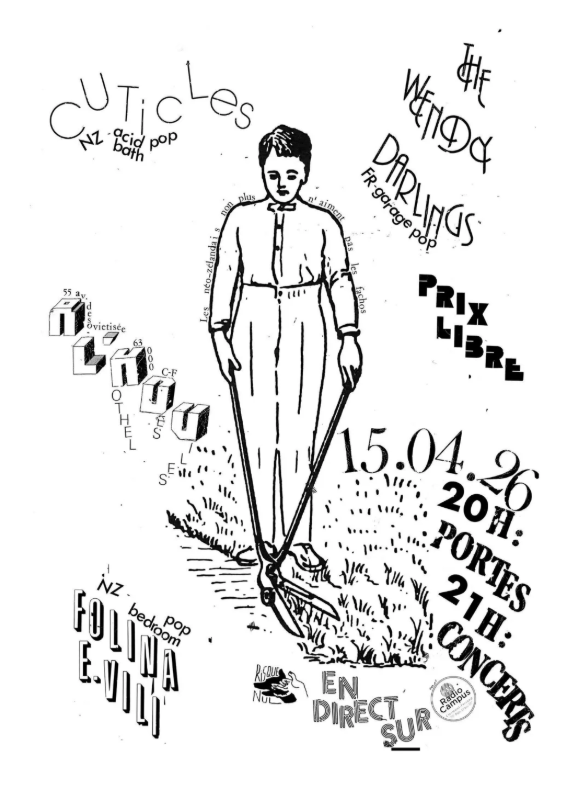 CUTiCLes
NZ - acid pop
bath
THE
WENDY
DARLINGS
FR-garage pop
Les néo-zélandais non plus n'aiment pas les fachos
PRIX
LIBRE
55 av.
de
sovietisée
63000
C-F
OTHEL
15.04.26
20H:
PORTES
21H:
CONCERTS
NZ - pop
bedroom
FOLINA
E.VILI
NUL
EN
DIRECT
SUR
Radio
Campus